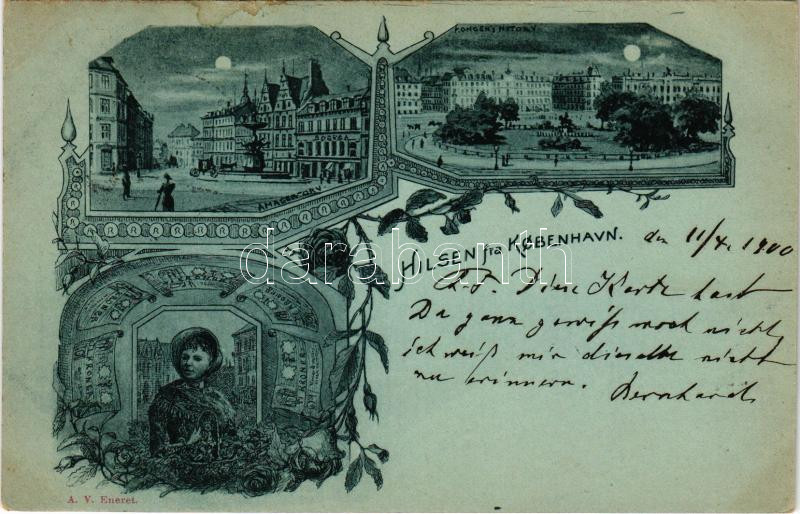 KONGENS NYTORV
AMAGERTORV
HILSEN fra KØBENHAVN.
den 11/4. 1900
Diese Karte hast
Du ganz gewiß noch nicht,
ich weiß mir dieselbe nicht
zu erinnern. Bernhard
darabanth
KRONER
KRONER
A. V. Eneret.